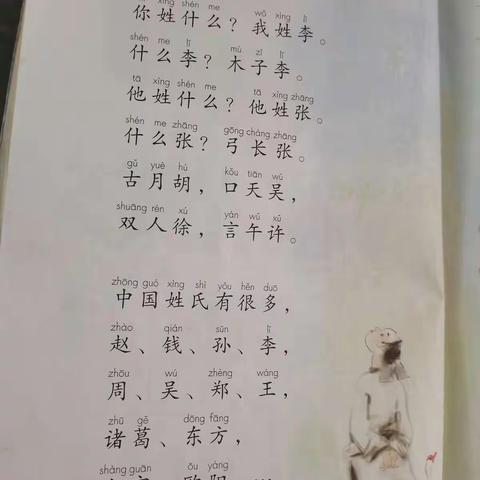 nǐ xìng shén me wǒ xìng lǐ
你姓什么？我姓李。
shén me lǐ mù zǐ lǐ
什么李？木子李。
tā xìng shén me tā xìng zhāng
他姓什么？他姓张。
shén me zhāng gōng cháng zhāng
什么张？弓长张。
gǔ yuè hú kǒu tiān wú
古月胡，口天吴，
shuāng rén xú yán wǔ xǔ
双人徐，言午许。
zhōng guó xìng shì yǒu hěn duō
中国姓氏有很多，
zhào qián sūn lǐ
赵、钱、孙、李，
zhōu wú zhèng wáng
周、吴、郑、王，
zhū gě dōng fāng
诸葛、东方，
shàng guān ōu yáng